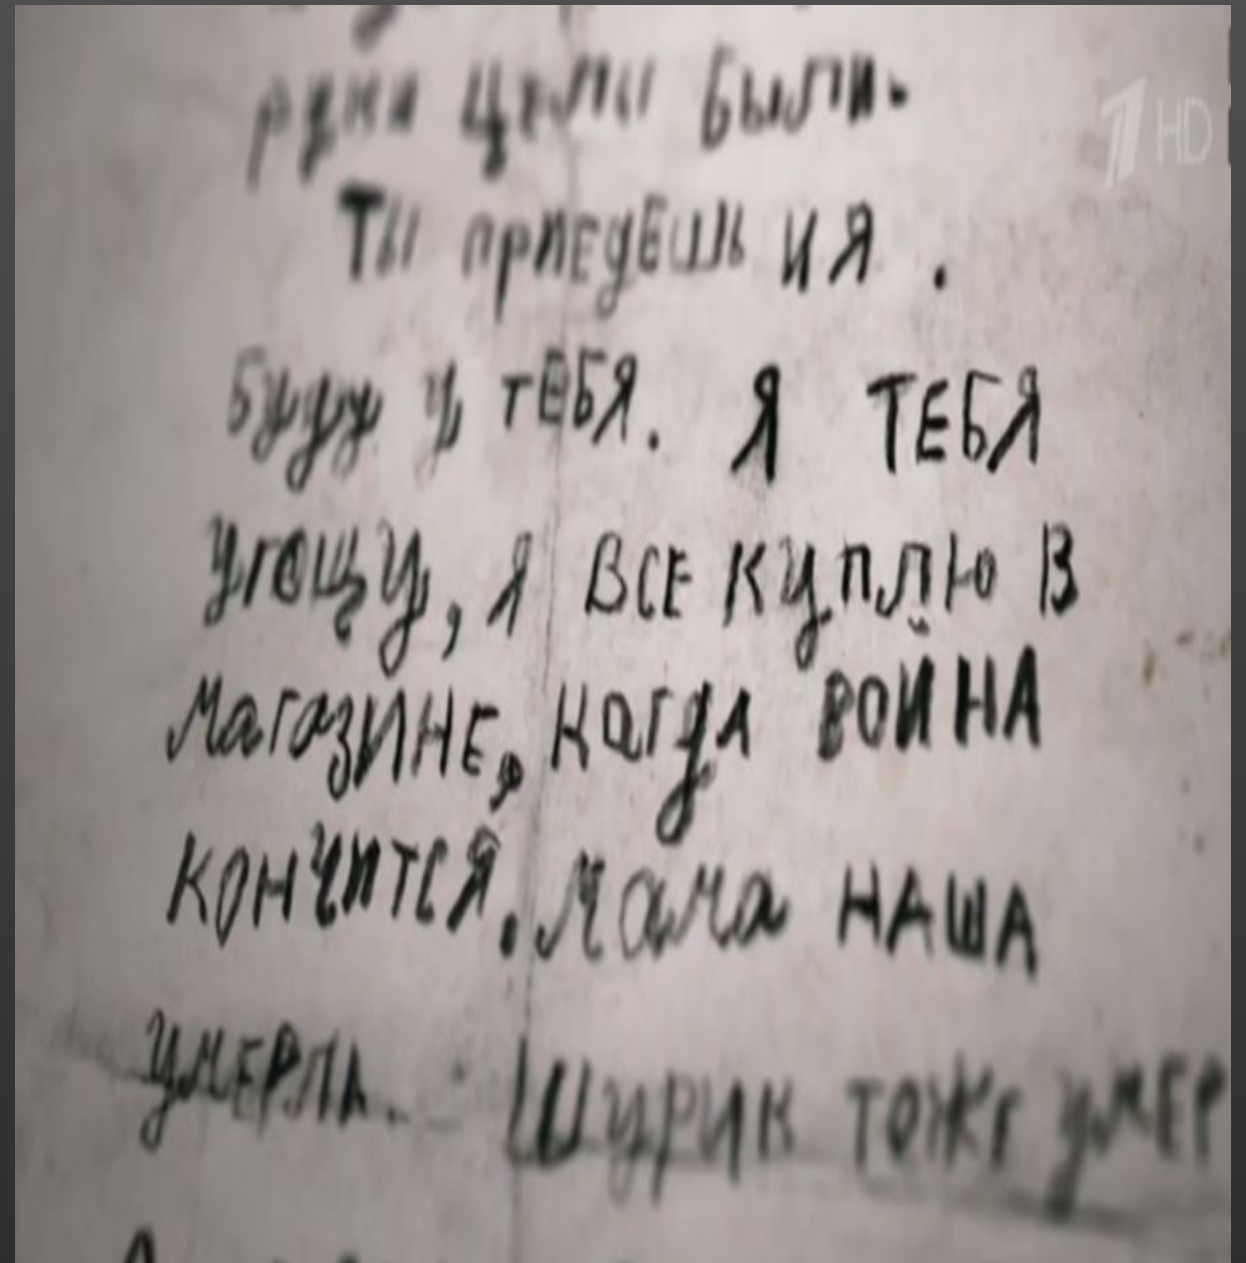 руки цели были.
HD
Ты приедешь и я .
буду у тебя. Я ТЕБЯ
угощу, я все куплю в
магазине, когда война
кончится. Мама наша
умерла. Шурик тоже умер